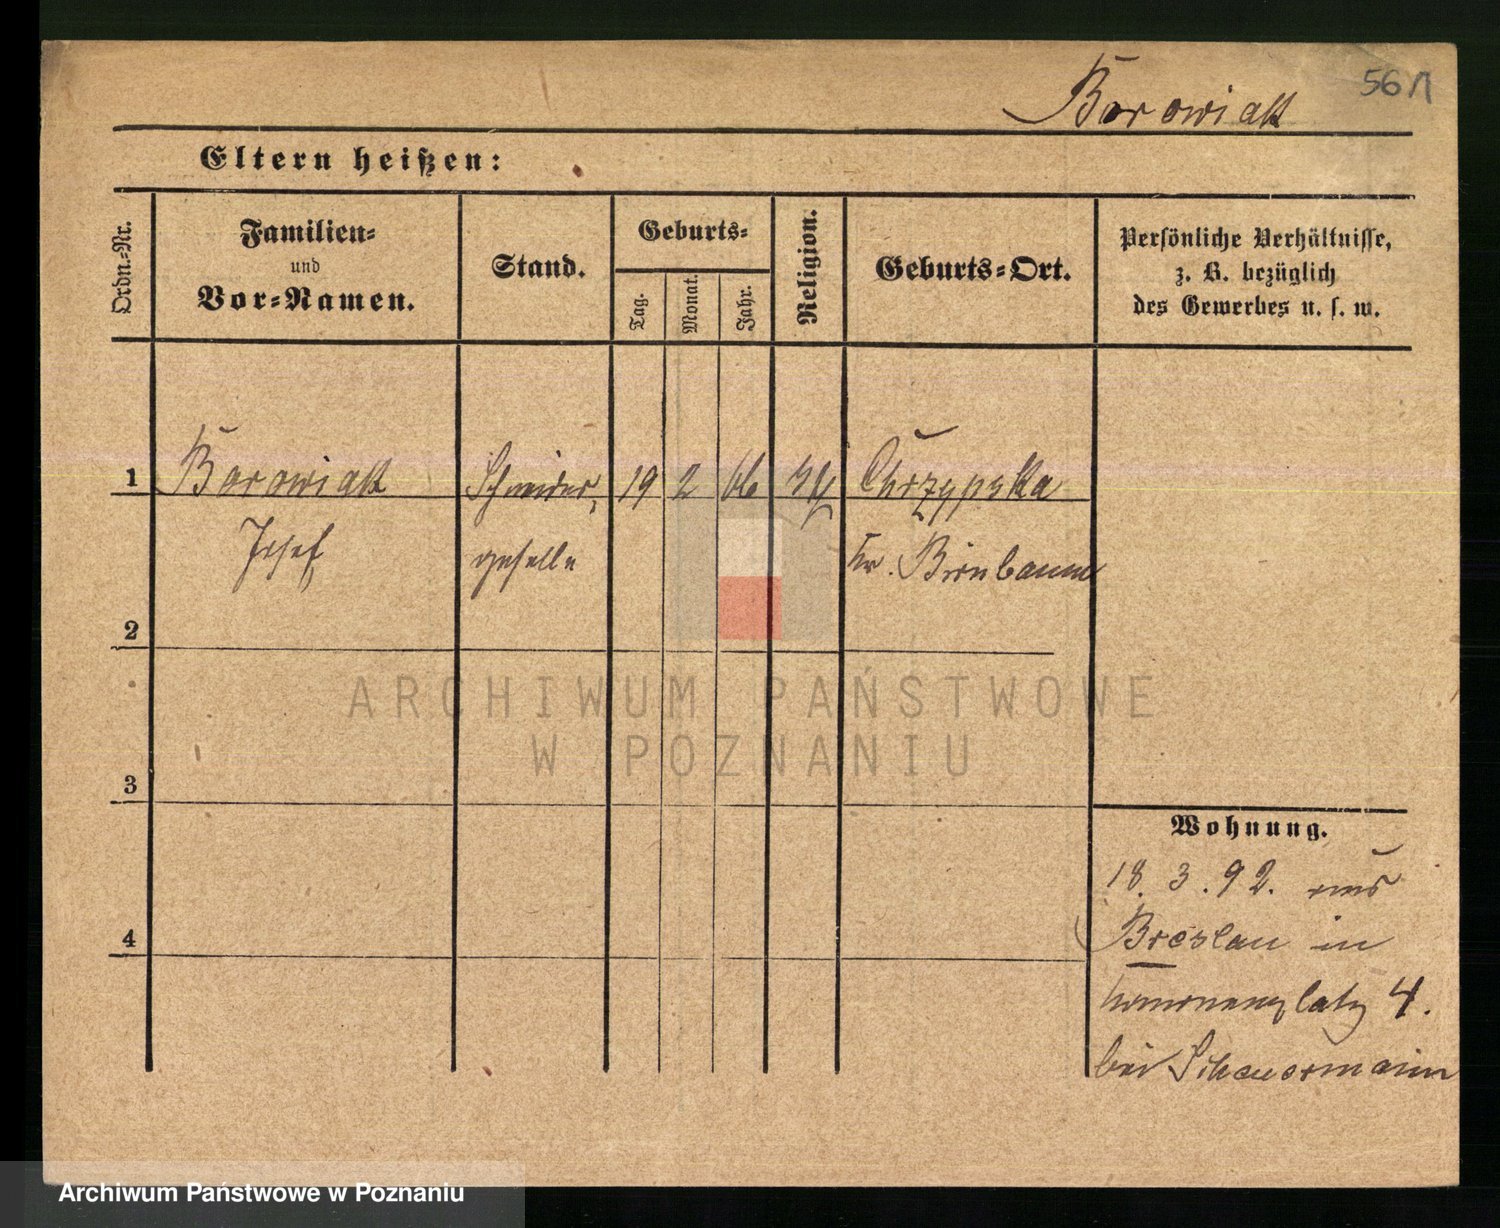 Borowiak
56/1
Eltern heißen:
Ordn.-Nr.
Familien-
und
Vor-Namen.
Stand.
Geburts-
Tag.
Monat.
Jahr.
Religion.
Geburts-Ort.
Persönliche Verhältnisse,
z. B. bezüglich
des Gewerbes u. s. w.
1 Borowiak Schneider- 19 2 66 Chrzypsko
Josef geselle Kr. Birnbaum
2
3
4
Wohnung.
18. 3. 92. aus
Breslau in
4.
bei Scheuermann
ARCHIWUM PAŃSTWOWE
W POZNANIU
Archiwum Państwowe w Poznaniu